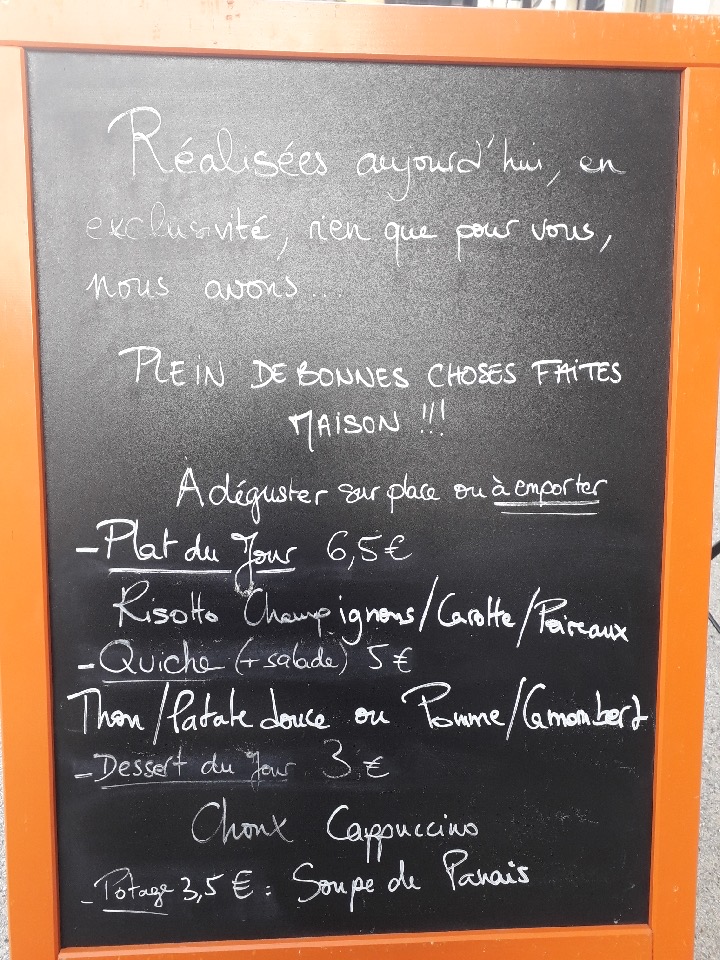 Réalisées aujourd'hui, en
exclusivité, rien que pour vous,
nous avons...
PLEIN DE BONNES CHOSES FAITES
MAISON !!!
À déguster sur place ou à emporter
- Plat du Jour 6,5€
Risotto Champignons/Carotte/Poireaux
- Quiche (+ salade) 5€
Thon/Patate douce ou Pomme/Camembert
- Dessert du Jour 3€
Choux Cappuccino
- Potage 3,5€ : Soupe de Panais